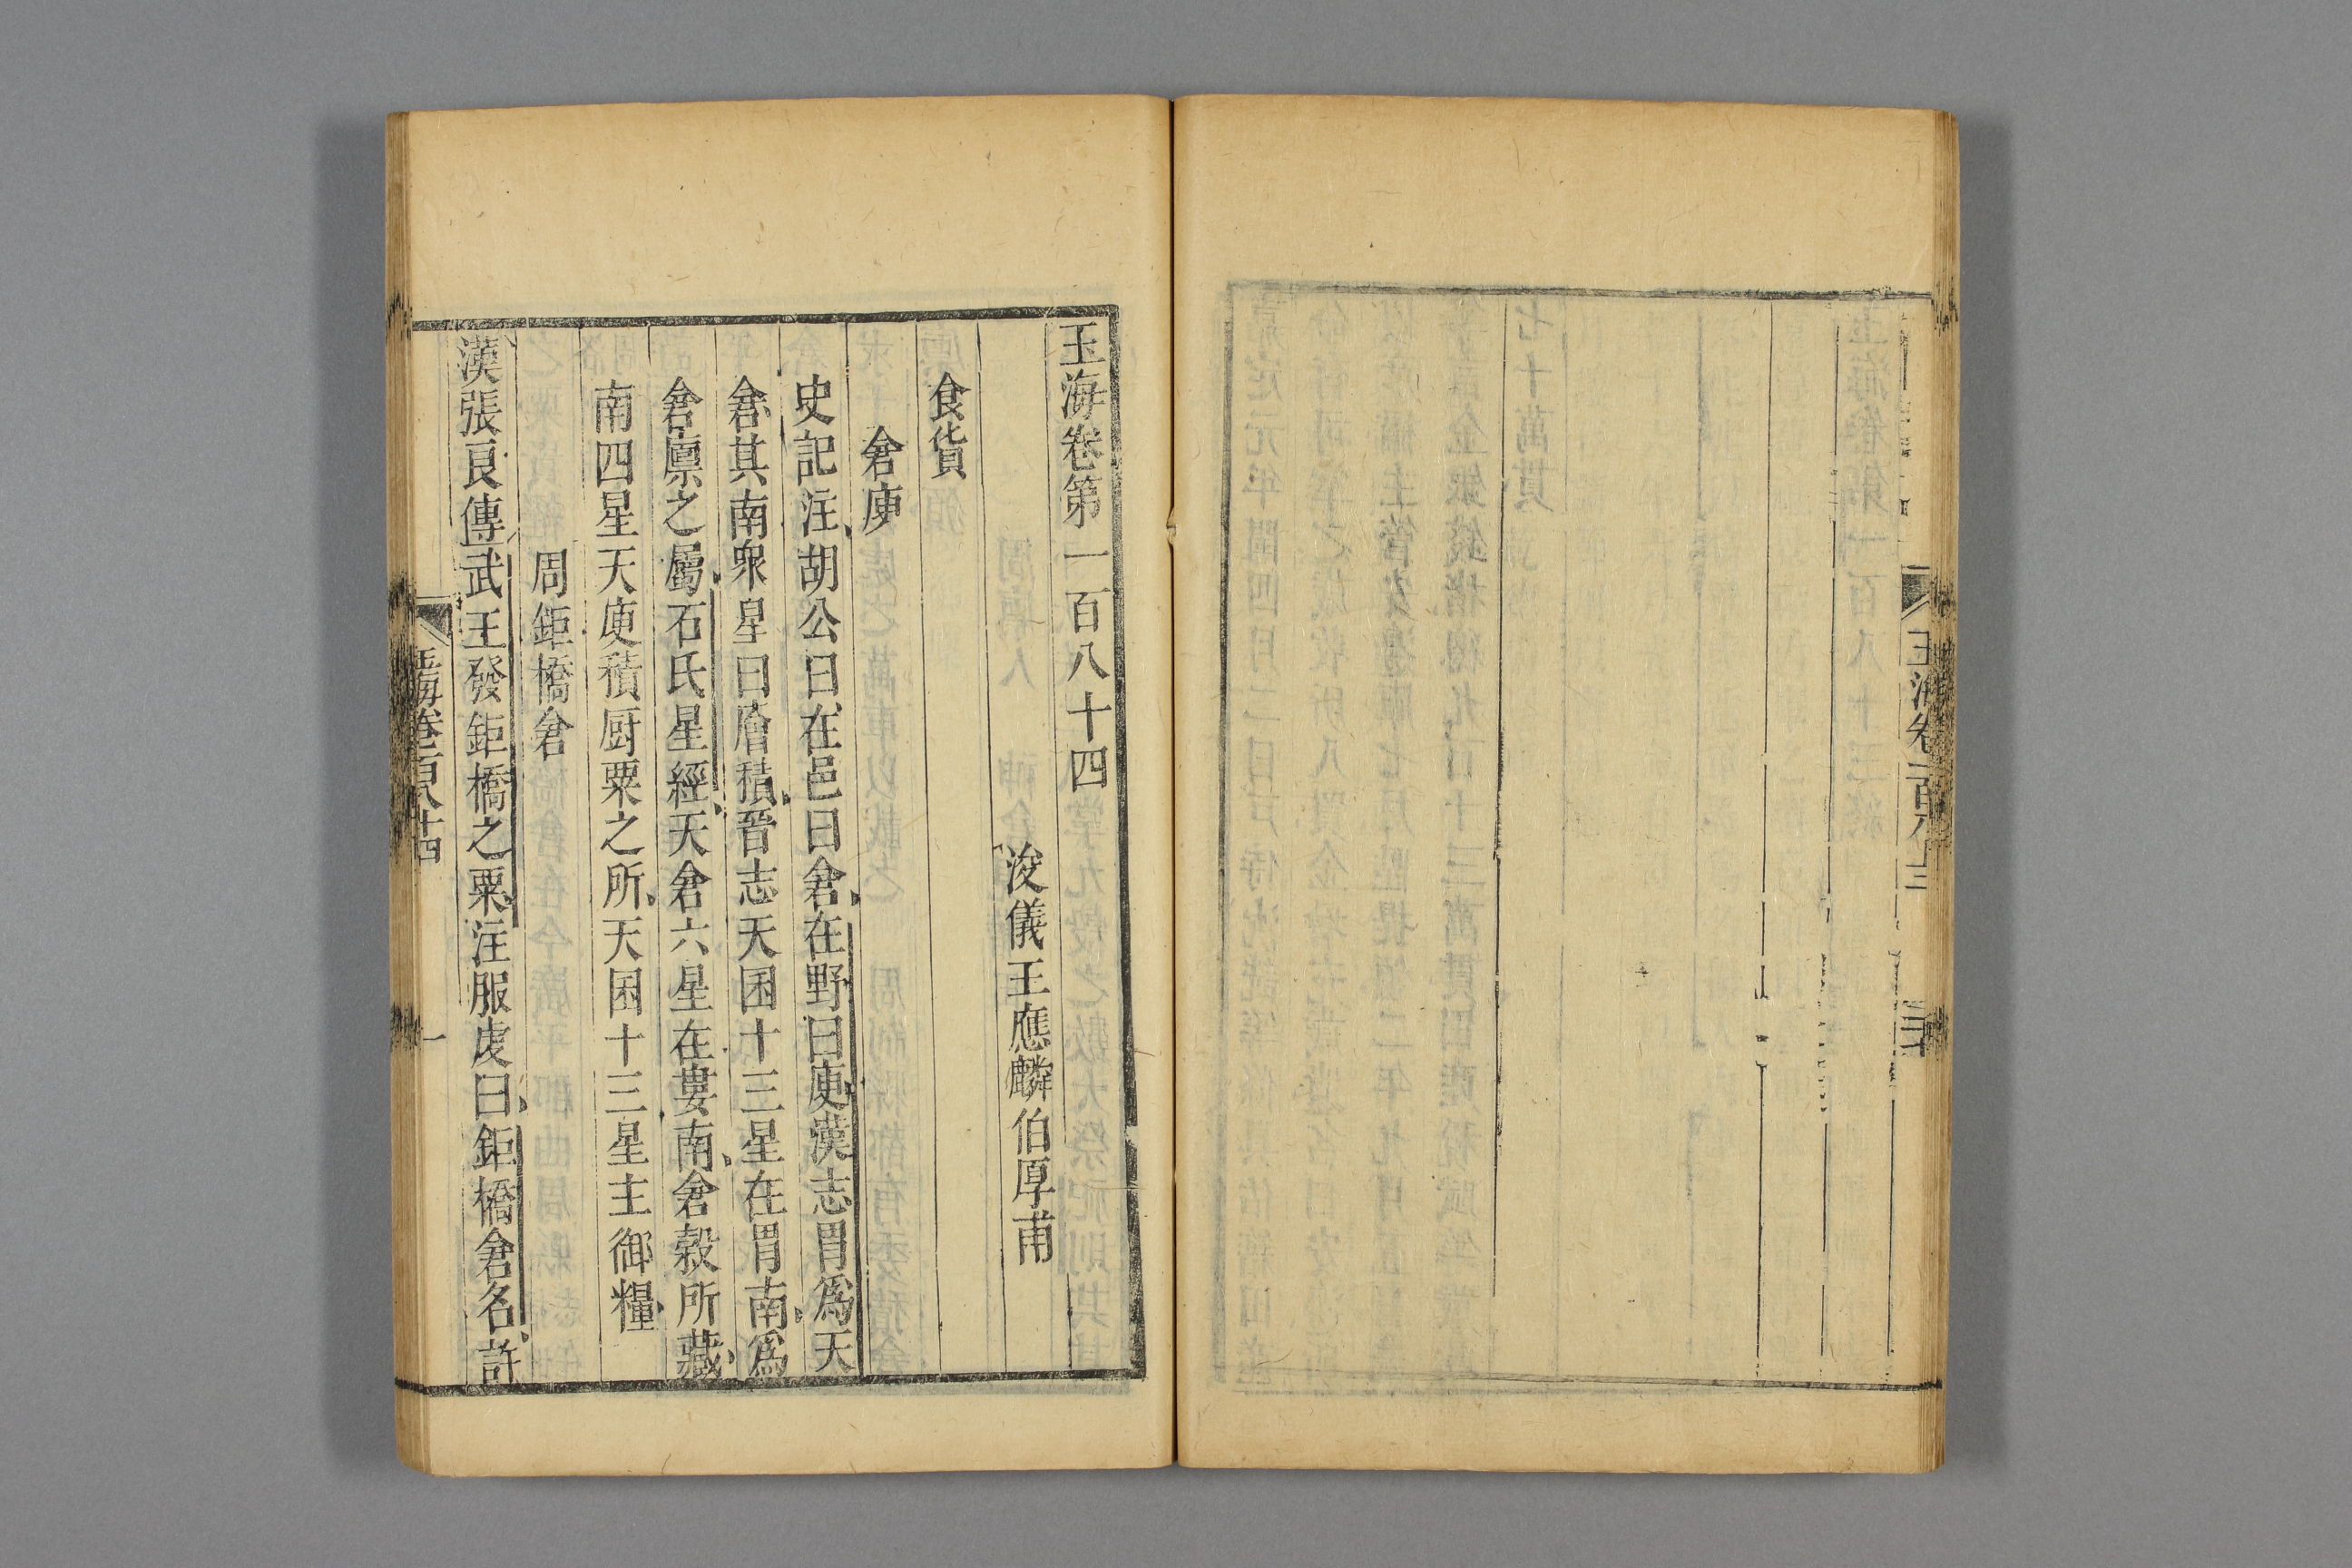 玉海卷一百八十三
玉海卷第一百八十四
浚儀王應麟伯厚甫
食貨
倉庾
史記注胡公曰在邑曰倉在野曰庾漢志胃爲天
倉其南衆星曰廥積晉志天囷十三星在胃南爲
倉廩之屬石氏星經天倉六星在婁南倉穀所藏
南四星天庾積厨粟之所天囷十三星主御糧
周鉅橋倉
漢張良傳武王發鉅橋之粟注服虔曰鉅橋倉名許
玉海卷一百八十四
一